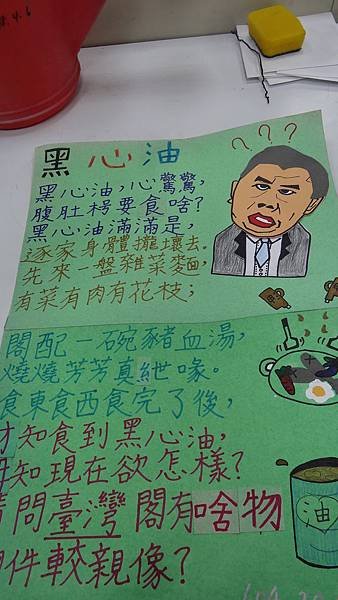 ???
黑心油
黑心油,心驚驚,
腹肚枵要食啥?
黑心油滿滿是,
逐家身體攏壞去。
先來一盤雜菜麵,
有菜有肉有花枝;
閣配一碗豬血湯,
燒燒芳芳真紲喙。
食東食西食完了後,
才知食到黑心油,
毋知現在欲怎樣?
請問臺灣閣有啥物
件較親像?
油